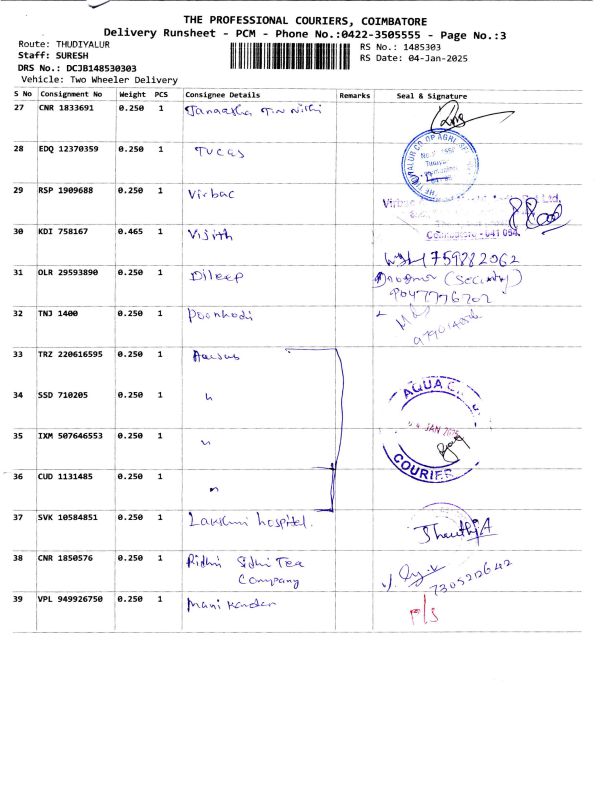 THE PROFESSIONAL COURIERS, COIMBATORE
Delivery Runsheet - PCM - Phone No.:0422-3505555 - Page No.:3
Route: THUDIYALUR RS No.: 1485303
Staff: SURESH RS Date: 04-Jan-2025
DRS No.: DCJB148530303
Vehicle: Two Wheeler Delivery
S No Consignment No Weight PCS Consignee Details Remarks Seal & Signature
27 CNR 1833691 0.250 1
28 EDQ 12370359 0.250 1 TUCAS
29 RSP 1909688 0.250 1 Virbac
Virbac Ltd.
30 KDI 758167 0.465 1 Vijith
Coimbatore - 641 034.
1759882062
31 OLR 29593890 0.250 1 Dileep (Security)
9047776202
32 TNJ 1400 0.250 1
33 TRZ 220616595 0.250 1
34 SSD 710205 0.250 1 "
AQUA
35 IXM 507646553 0.250 1 "
04 JAN 2025
COURIER
36 CUD 1131485 0.250 1 "
37 SVK 10584851 0.250 1 Lakshmi hospital.
ShanthiA
38 CNR 1850576 0.250 1 Ridhi Sidhi Tea
Company
7305212642
39 VPL 949926750 0.250 1 Mani Kandan
P/S